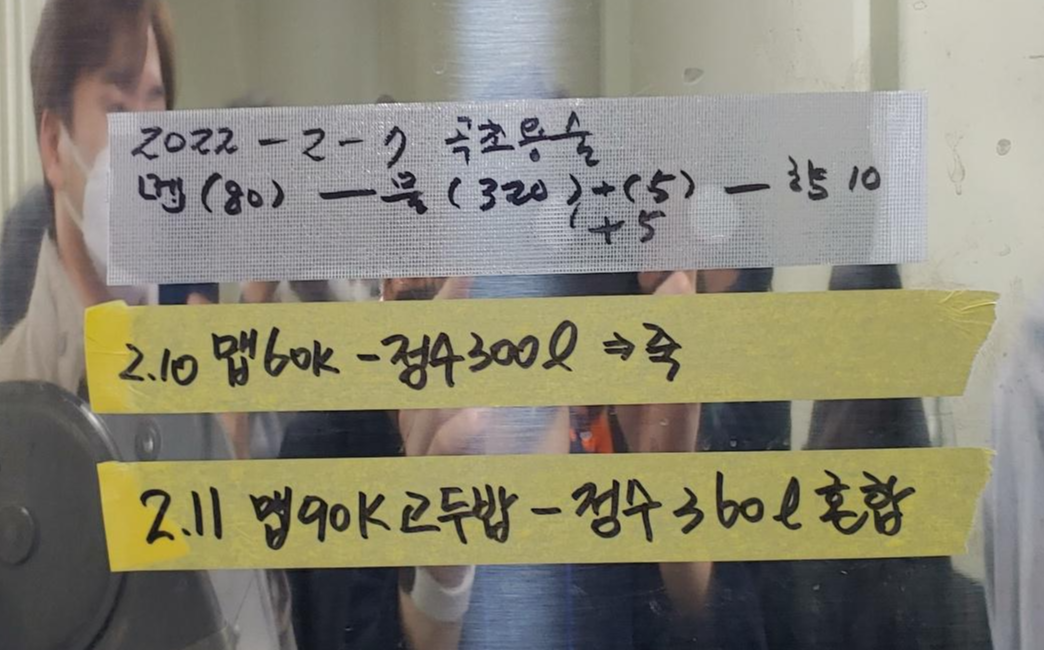 2022-2-7 곡초용술
멥(80) — 물(320)+(5) — 10
+5
2.10 멥60K -정수300l ⇒죽
2.11 멥90K 고두밥 - 정수 360l 혼합